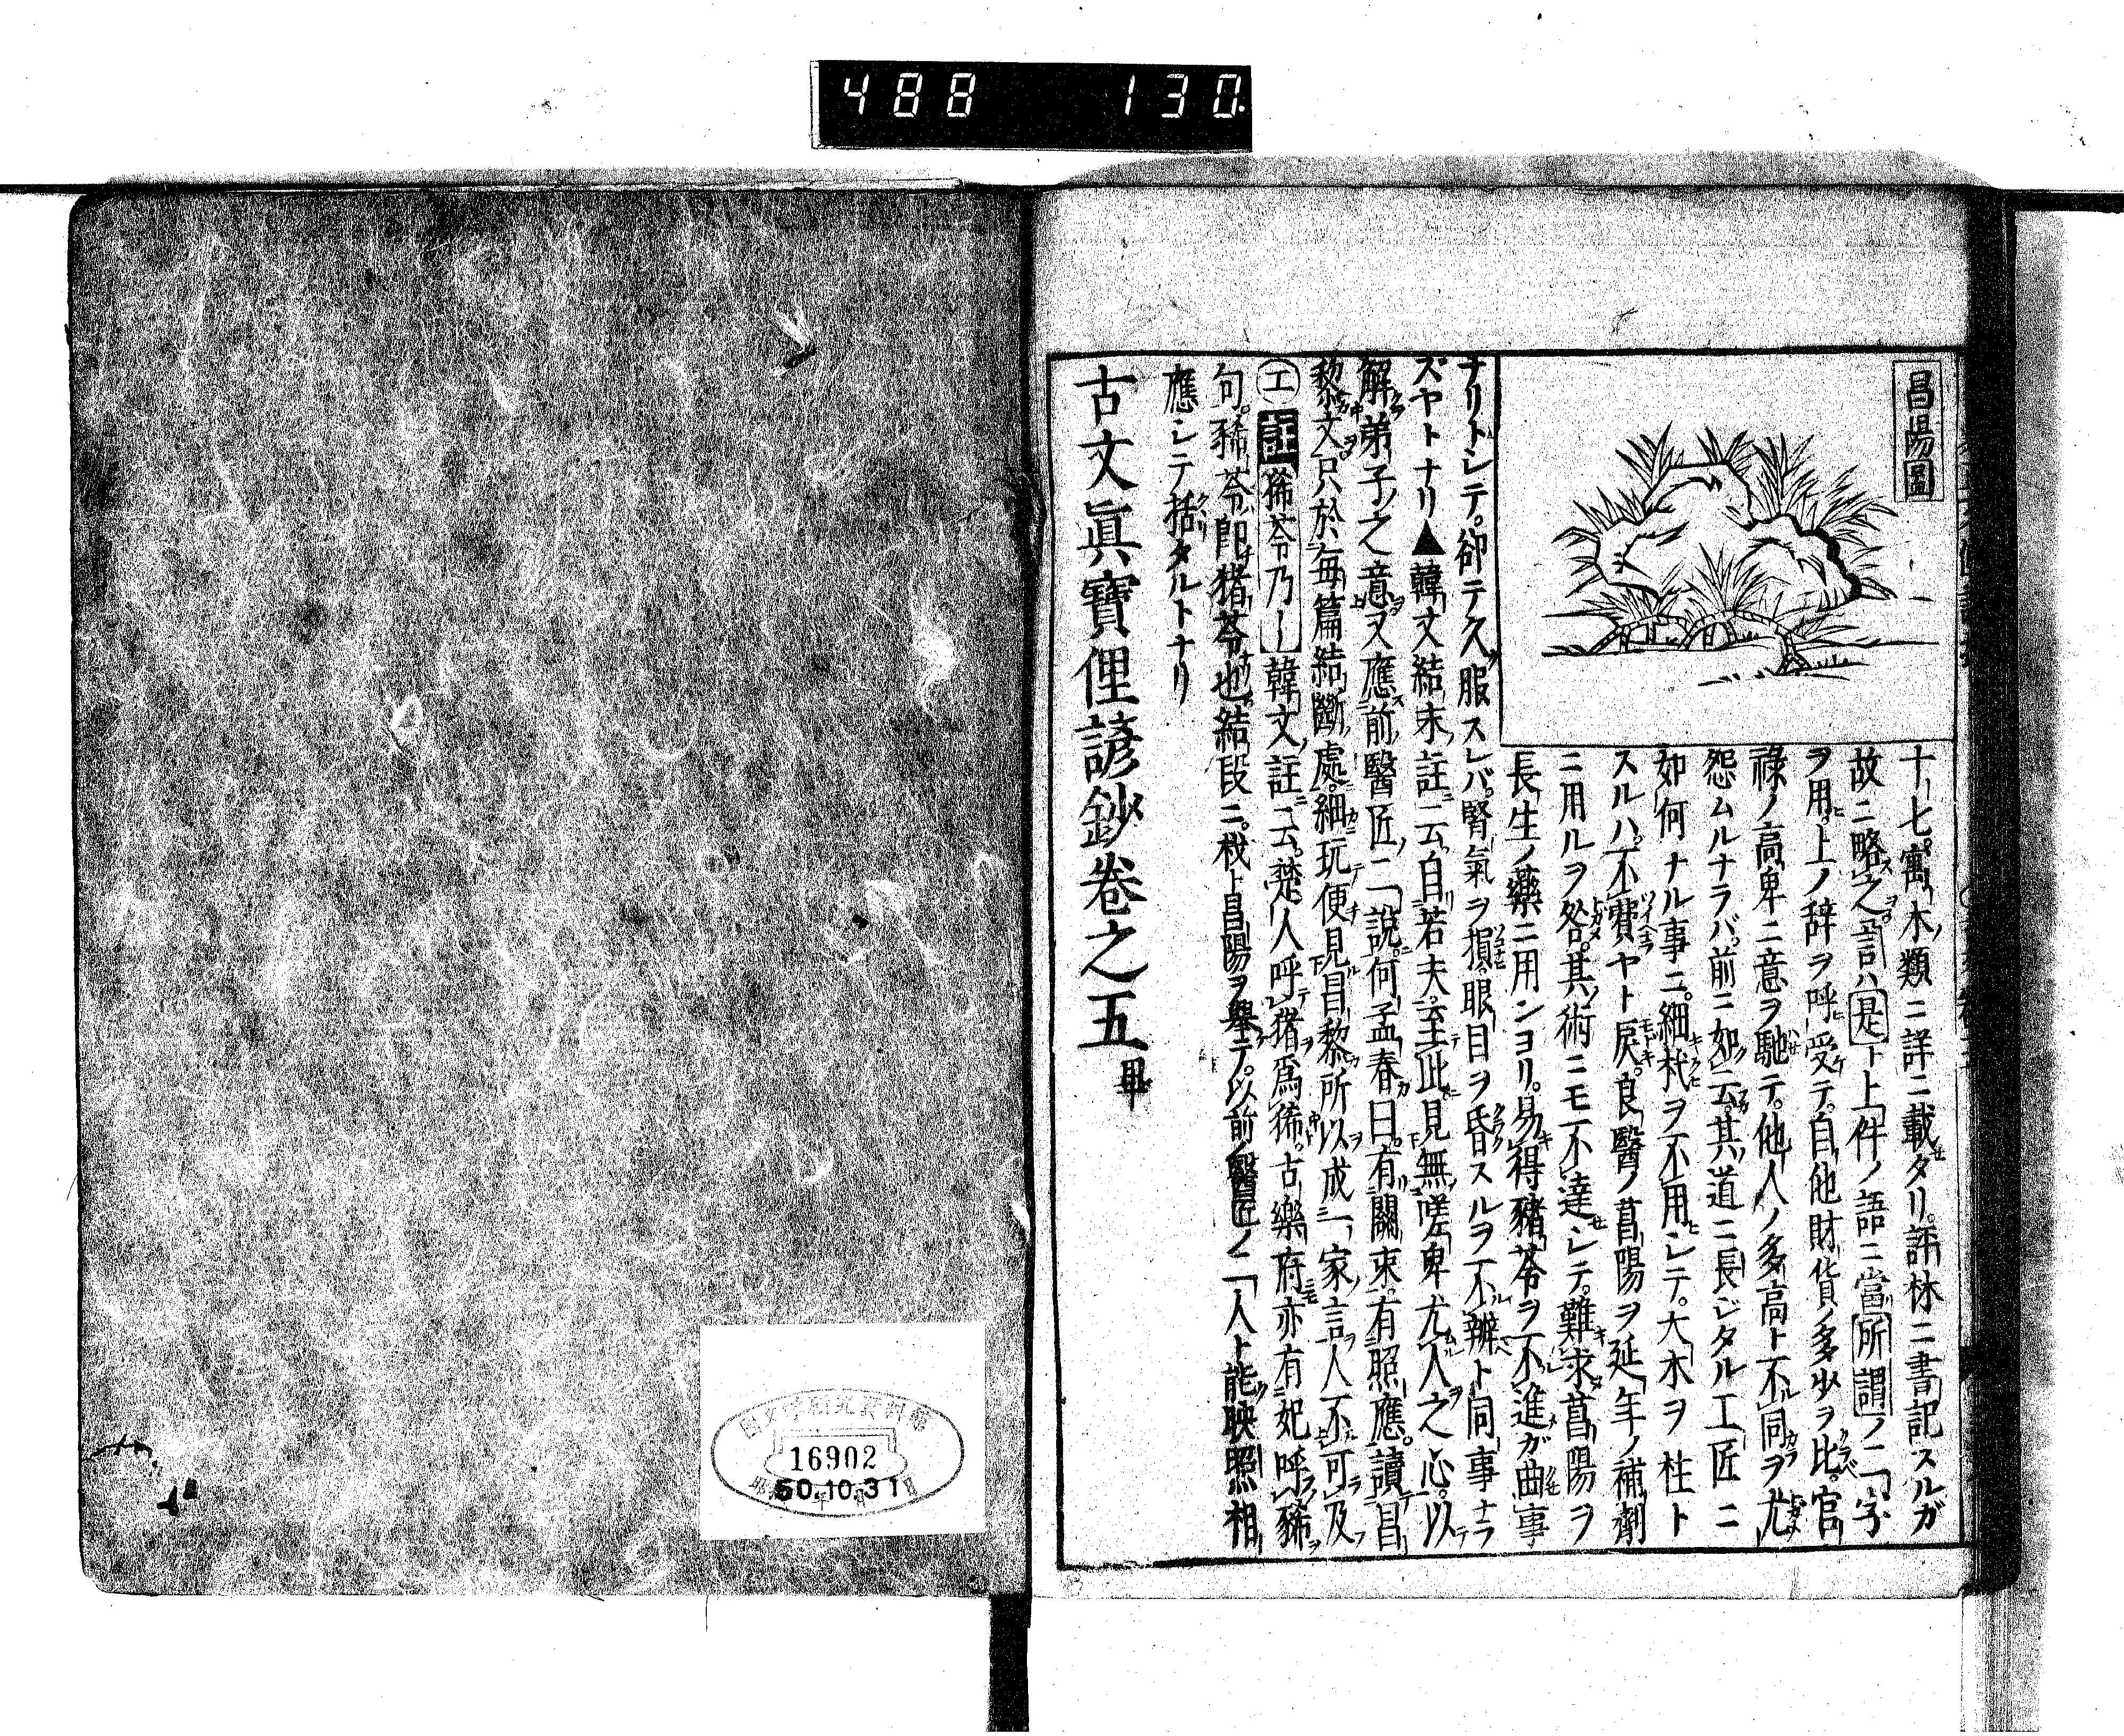 488 130
昌陽圖
十七寓木類ニ詳ニ載タリ。評林ニ書記スルガ
故ニ略之言ハ是下上件ノ語ニ當所謂ノ二字
ヲ用。上ノ辞ヲ呼受テ。自他財貨ノ多少ヲ比。官
祿ノ高卑ニ意ヲ馳テ。他人ノ多高ト不同ヲ尤
怨ムルナラバ。前ニ如云。其道ニ長ジタル工匠ニ
如何ナル事ニ。細杙ヲ不用シテ。大木ヲ柱ト
スルハ。不費ヤト戻。良醫ノ菖陽ヲ延年ノ補劑
ニ用ルヲ咎。其術ニモ不達シテ。難求菖陽ヲ
長生ノ藥ニ用ンヨリ。易得豬苓ヲ不進ガ曲事
ナリトシテ。卻テ久服スレバ。腎氣ヲ損。眼目ヲ昏スルヲ不辨ト同事ナラ
ズヤトナリ▲韓文結末註ニ云自若夫至此見無嗟卑尤人之心。以
解弟子之意又應前醫匠二說。何孟春曰。有關束有照應。讀昌
黎文只於每篇結斷處。細玩便見昌黎所以成一家言人不可及
工 註 豨苓乃 韓文註云。楚人呼豬爲豨。古樂府亦有妃呼豨
句。豨苓卽豬苓也結段ニ。杙ト昌陽ヲ舉テ。以前ノ醫匠ノ二人ト能映照相
應シテ括タルトナリ
古文眞寶俚諺鈔卷之五 畢
16902
50.10.31